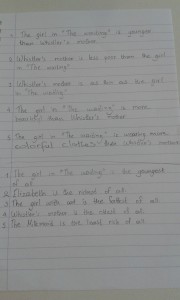 1. The girl in "The wedding" is youngest
than Whistler's mother.
2. Whistler's mother is less poor than the girl
in "The wedding"
3. Whistler's mother is as thin as the girl
in "The wedding"
4. The girl in "The wedding" is more
beautiful than Whistler's mother
5. The girl in "The wedding" is wearing more
colorful clothes than Whistler's mother
1. The girl in "The wedding" is the youngest
of all.
2. Elizabeth is the richest of all.
3. The girl with cat is the fattest of all.
4. Whistler's mother is the of all.
5. The Milkmaid is one least rich of all.